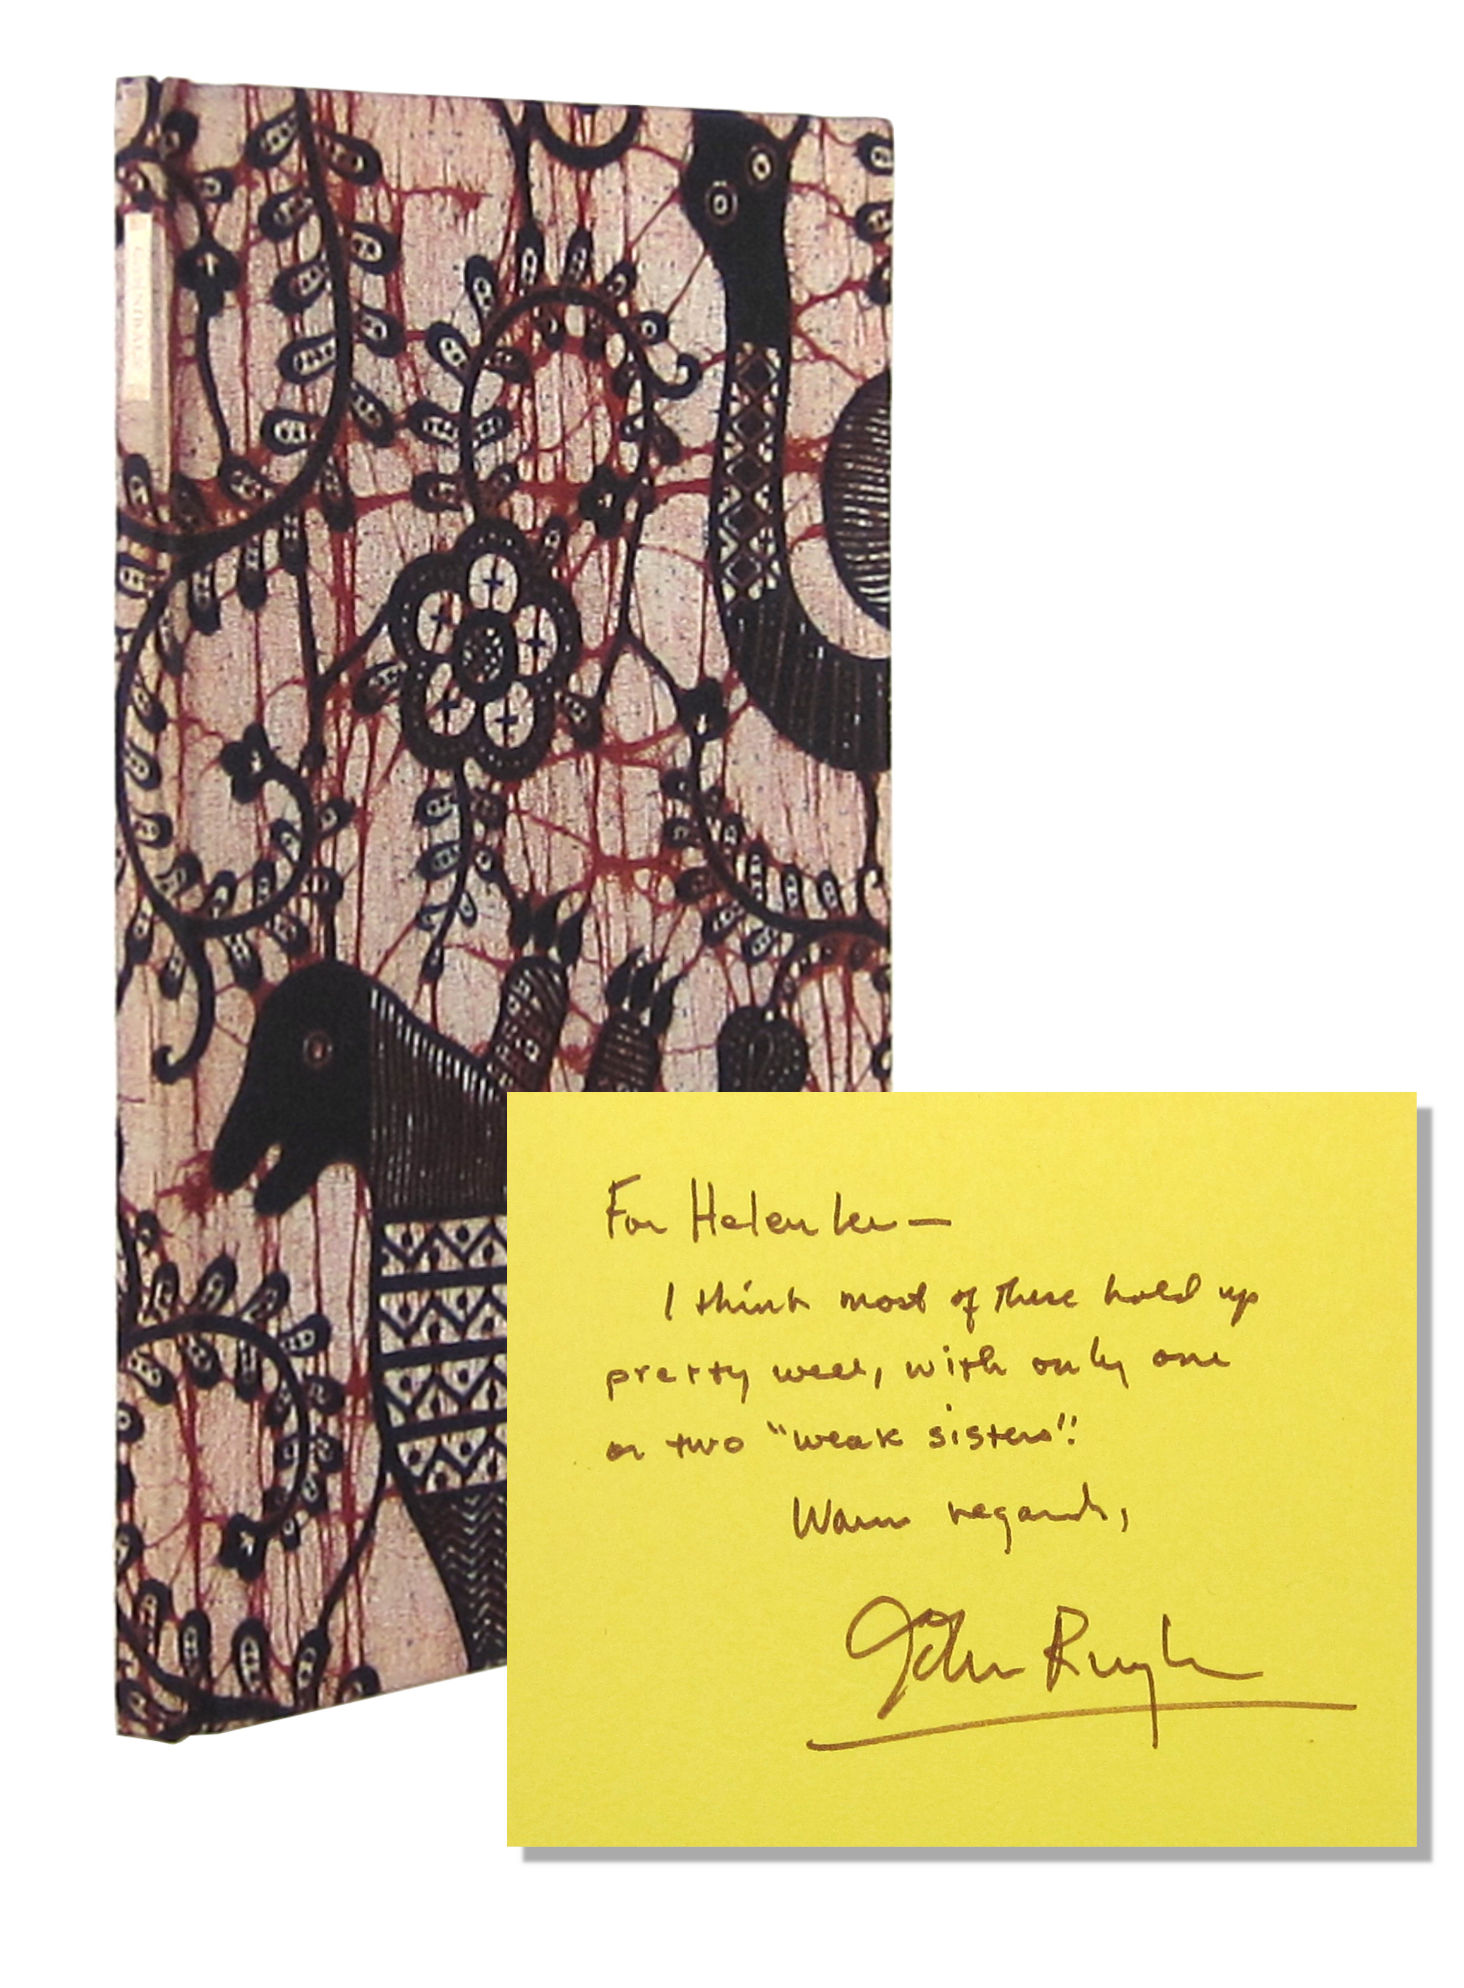 For Helen Lee—
I think most of these hold up
pretty well, with only one
or two "weak sisters"!
Warm regards,
John